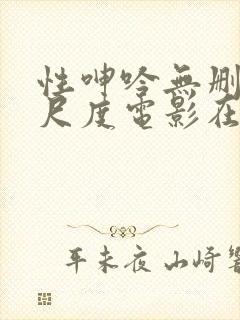 性呻吟無删
尺度電影在
平未夜 山崎響